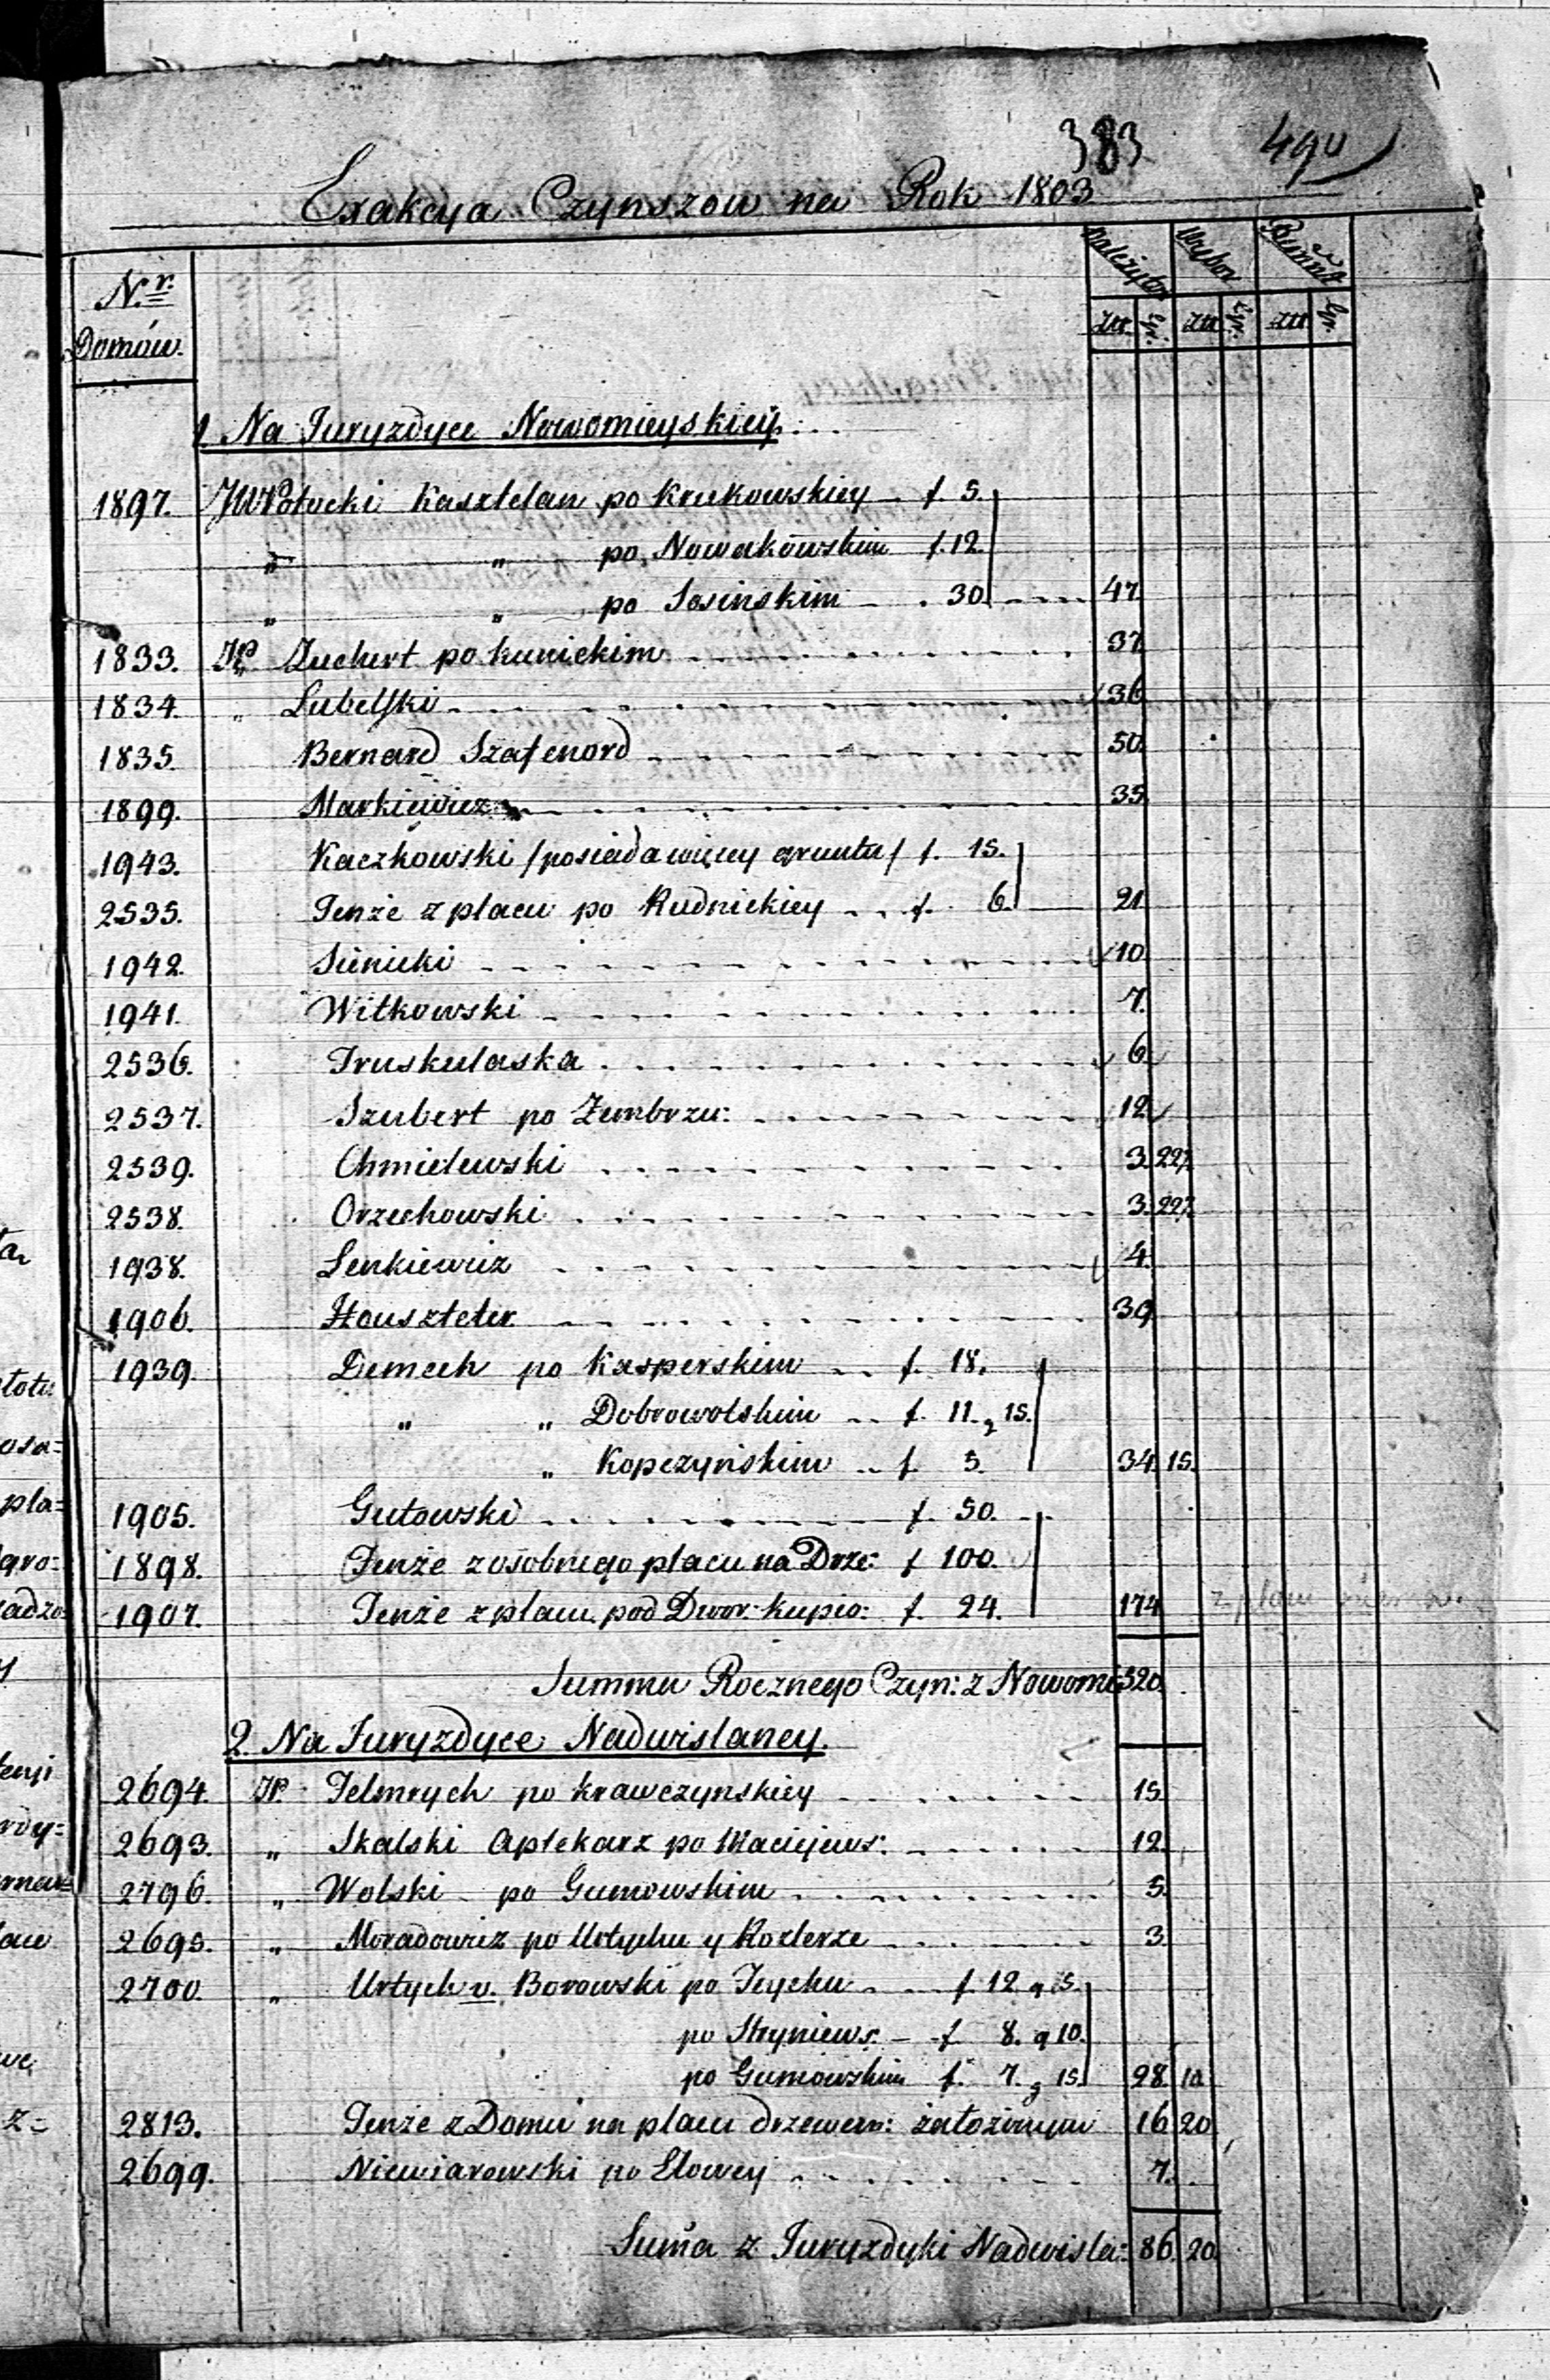 383 490
Exakcya Czynszow na Rok 1803
Należytoś Wybor Remāā
N.r Domów. Zł. Gr. Zł. Gr. Zł. Gr.
1. Na Juryzdyce Nowomieyskiey
1897. JW Potocki Kasztelan po Krukowskiey f. 5.
„ „ po Nowakowskim f. 12.
„ „ po Sosinskim 30. 47.
1833. JP. Zuchert po Kunickim 37.
1834. „ Lubelski 36
1835. Bernard Szafenord 50.
1899. Markiewicz 35.
1943. Kaczkowski /posiada więcey gruntu/ f. 15.
2535. Tenże z placu po Rudnickiey f. 6. 21.
1942. Sienicki 10
1941. Witkowski 7.
2536. Truskulaska 6
2537. Szubert po Zembrzu: 12
2539. Chmielewski 3. 22½
2538. Orzechowski 3. 22½
1938. Lenkiewicz 4.
1906. Hauszteter 39
1939. Demech po Kasperskim f. 18.
„ „ Dobrowolskim f. 11. g 15.
„ Kopczyńskim f. 5. 34. 15.
1905. Gutowski f. 50.
1898. Tenże z osobnego placu na Drze: f 100.
1907. Tenże z placu pod Dwor: Kupio: f. 24. 174 z placu
Summa Rocznego Czyn: z Nowomi 520.
2. Na Juryzdyce Nadwislaney.
2694. JP. Telmrych po Krawczynskiey 15.
2693. „ Skalski Aptekarz po Maciejews: 12.
2796. „ Wolski po Gumowskim 5.
2695. „ Moradowicz po Urtychu y Rozlerze 3.
2700. „ Urtych v. Borowski po Teychu f. 12 g 15.
po Stryniews. f 8. g 10.
po Gumowskim f. 7. g 15. 28. 10
2813. Tenże z Domu na placu drzewem: założonym 16 20
2699. Niewiarowski po Elowey 7.
Sum̄a z Juryzdyki Nadwisla: 86. 20.